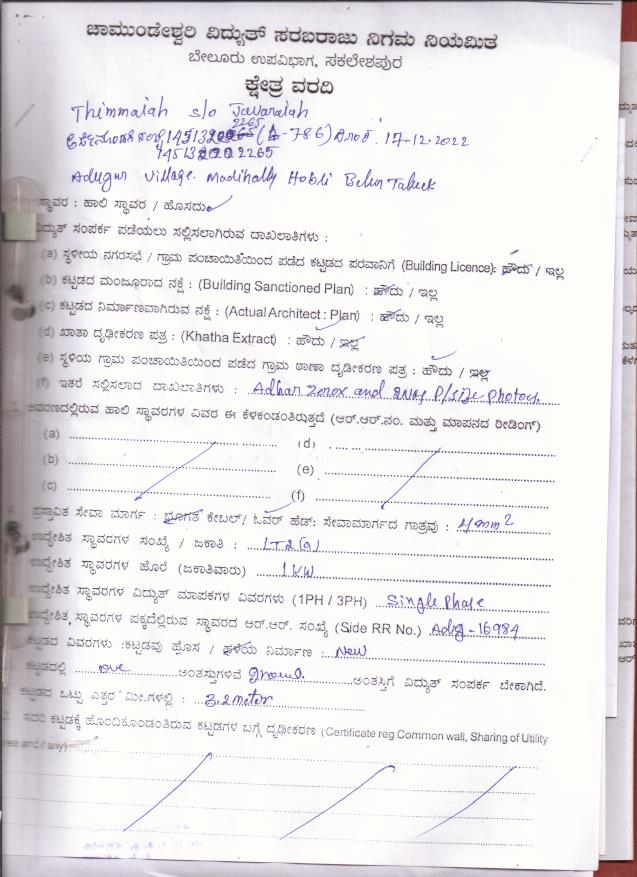 ಚಾಮುಂಡೇಶ್ವರಿ ವಿದ್ಯುತ್ ಸರಬರಾಜು ನಿಗಮ ನಿಯಮಿತ
ಬೇಲೂರು ಉಪವಿಭಾಗ, ಸಕಲೇಶಪುರ
ಕ್ಷೇತ್ರ ವರದಿ
Thimmaiah s/o Javaraiah
2265
(A-786) ದಿನಾಂಕ. 17-12.2022
145132022265
Adugur village. Madihally Hobli Belur Taluk
ಸ್ಥಾವರ : ಹಾಲಿ ಸ್ಥಾವರ / ಹೊಸದು
ವಿದ್ಯುತ್ ಸಂಪರ್ಕ ಪಡೆಯಲು ಸಲ್ಲಿಸಲಾಗಿರುವ ದಾಖಲಾತಿಗಳು :
(a) ಸ್ಥಳೀಯ ನಗರಸಭೆ / ಗ್ರಾಮ ಪಂಚಾಯಿತಿಯಿಂದ ಪಡೆದ ಕಟ್ಟಡದ ಪರವಾನಿಗೆ (Building Licence): ಹೌದು / ಇಲ್ಲ
(b) ಕಟ್ಟಡದ ಮಂಜೂರಾದ ನಕ್ಷೆ : (Building Sanctioned Plan) : ಹೌದು / ಇಲ್ಲ
(c) ಕಟ್ಟಡದ ನಿರ್ಮಾಣವಾಗಿರುವ ನಕ್ಷೆ : (Actual Architect : Plan) : ಹೌದು / ಇಲ್ಲ
(d) ಖಾತಾ ದೃಢೀಕರಣ ಪತ್ರ : (Khatha Extract) : ಹೌದು / ಇಲ್ಲ
(e) ಸ್ಥಳೀಯ ಗ್ರಾಮ ಪಂಚಾಯಿತಿಯಿಂದ ಪಡೆದ ಗ್ರಾಮ ಠಾಣಾ ದೃಢೀಕರಣ ಪತ್ರ : ಹೌದು / ಇಲ್ಲ
(f) ಇತರೆ ಸಲ್ಲಿಸಲಾದ ದಾಖಲಾತಿಗಳು : Adhar Zerox and P/size photos.
ಆವರಣದಲ್ಲಿರುವ ಹಾಲಿ ಸ್ಥಾವರಗಳ ವಿವರ ಈ ಕೆಳಕಂಡಂತಿರುತ್ತದೆ (ಆರ್.ಆರ್.ನಂ. ಮತ್ತು ಮಾಪನದ ರೀಡಿಂಗ್)
(a) (d)
(b) (e)
(c) (f)
ಪ್ರಸ್ತಾವಿತ ಸೇವಾ ಮಾರ್ಗ : ಭೂಗತ ಕೇಬಲ್/ ಓವರ್ ಹೆಡ್: ಸೇವಾಮಾರ್ಗದ ಗಾತ್ರವು : 4mm2
ಉದ್ದೇಶಿತ ಸ್ಥಾವರಗಳ ಸಂಖ್ಯೆ / ಜಕಾತಿ : LT2(a)
ಉದ್ದೇಶಿತ ಸ್ಥಾವರಗಳ ಹೊರೆ (ಜಕಾತಿವಾರು) 1 KW
ಉದ್ದೇಶಿತ ಸ್ಥಾವರಗಳ ವಿದ್ಯುತ್ ಮಾಪಕಗಳ ವಿವರಗಳು (1PH / 3PH) Single Phase
ಉದ್ದೇಶಿತ ಸ್ಥಾವರಗಳ ಪಕ್ಕದಲ್ಲಿರುವ ಸ್ಥಾವರದ ಆರ್.ಆರ್. ಸಂಖ್ಯೆ (Side RR No.) Adg-16984
ಕಟ್ಟಡದ ವಿವರಗಳು :ಕಟ್ಟಡವು ಹೊಸ / ಹಳೆಯ ನಿರ್ಮಾಣ : New
ಕಟ್ಟಡದಲ್ಲಿ one ಅಂತಸ್ತುಗಳಿವೆ Ground. ಅಂತಸ್ತಿಗೆ ವಿದ್ಯುತ್ ಸಂಪರ್ಕ ಬೇಕಾಗಿದೆ.
ಕಟ್ಟಡದ ಒಟ್ಟು ಎತ್ತರ ಮೀ.ಗಳಲ್ಲಿ : 3.2 meter
2. ಸದರಿ ಕಟ್ಟಡಕ್ಕೆ ಹೊಂದಿಕೊಂಡಂತಿರುವ ಕಟ್ಟಡಗಳ ಬಗ್ಗೆ ದೃಢೀಕರಣ (Certificate reg Common wall, Sharing of Utility
and if any)